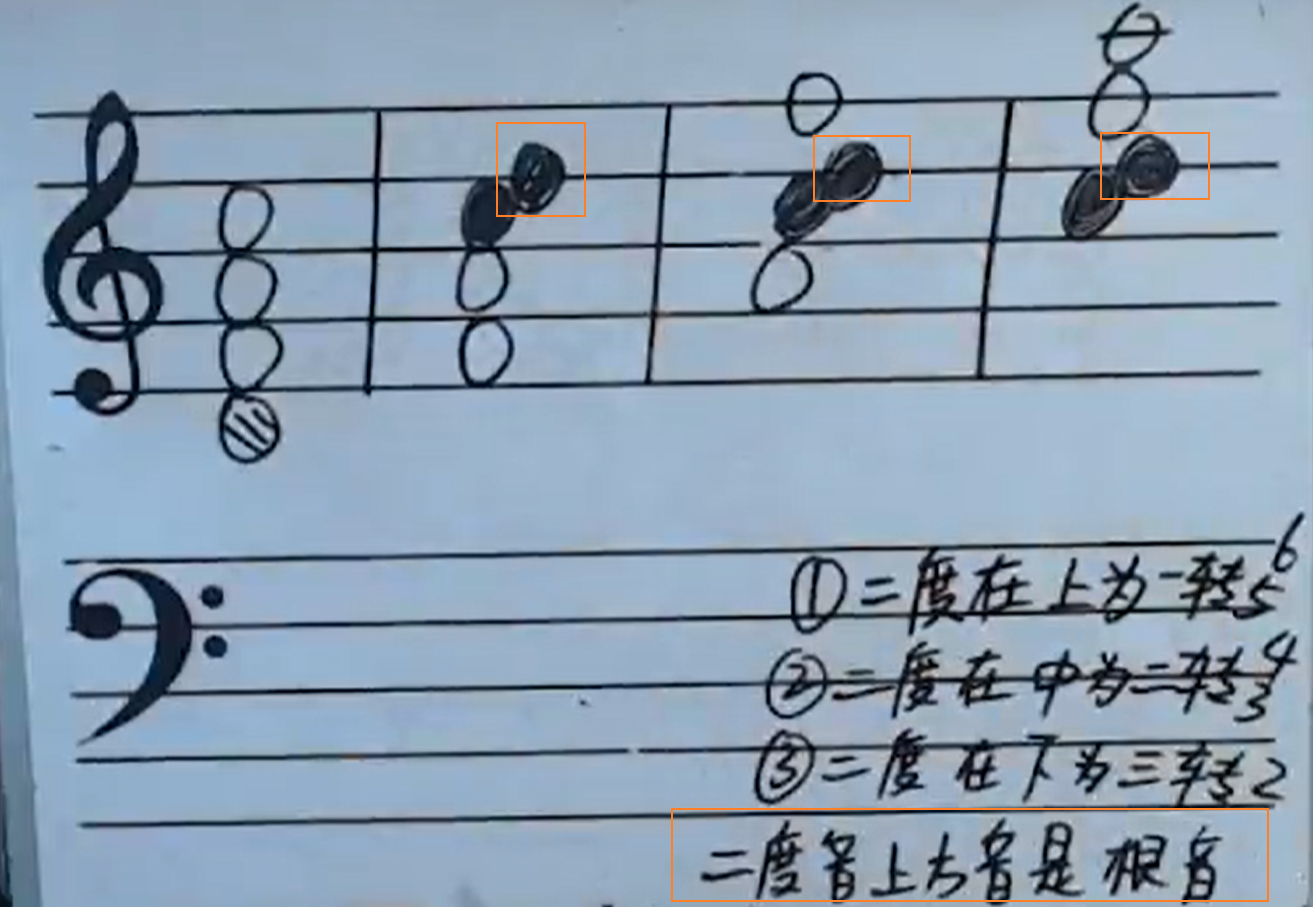 ①二度在上为一转6 5
②二度在中为二转4 3
③二度在下为三转2
二度音上方音是根音